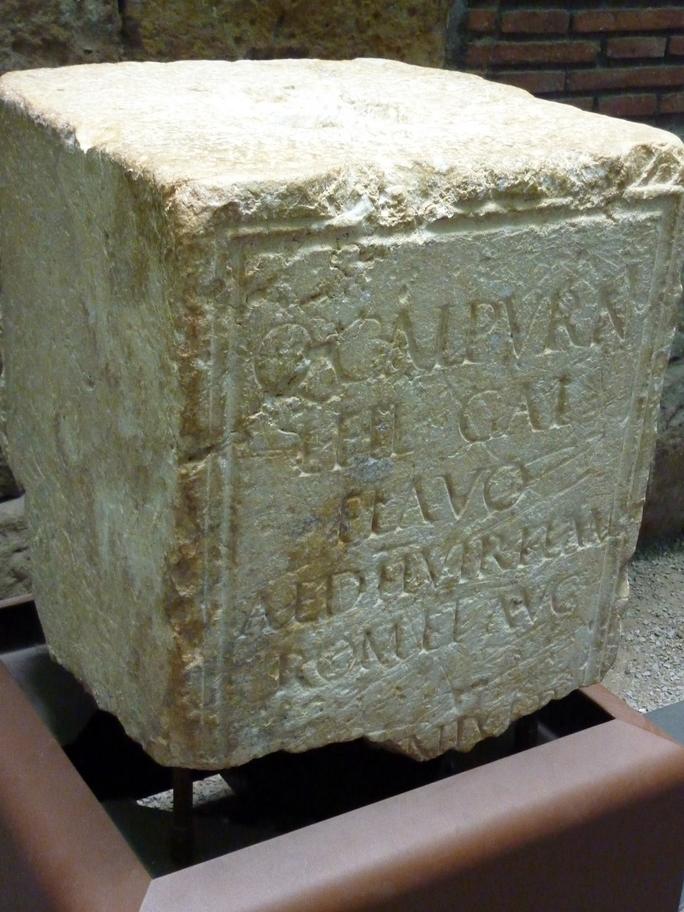 Q CALPVRNI
I FIL GAL
FLAVO
AED II VIR FLAM
ROM ET AVG